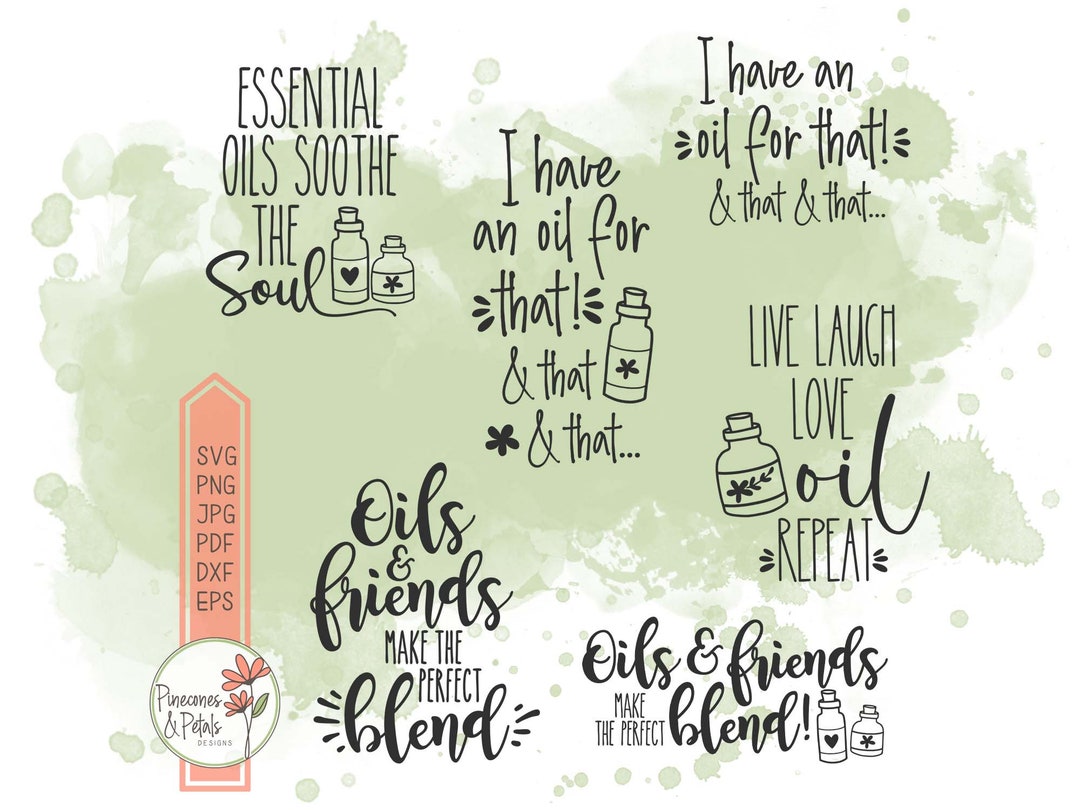 ESSENTIAL
OILS SOOTHE
THE
Soul
I have
an oil for
that!
& that
& that...
I have an
oil for that!
& that & that...
LIVE LAUGH
LOVE
oil
REPEAT
SVG
PNG
JPG
PDF
DXF
EPS
Pinecones
& Petals
DESIGNS
Oils
&
friends
MAKE THE
PERFECT
blend
Oils & friends
MAKE
THE PERFECT blend!